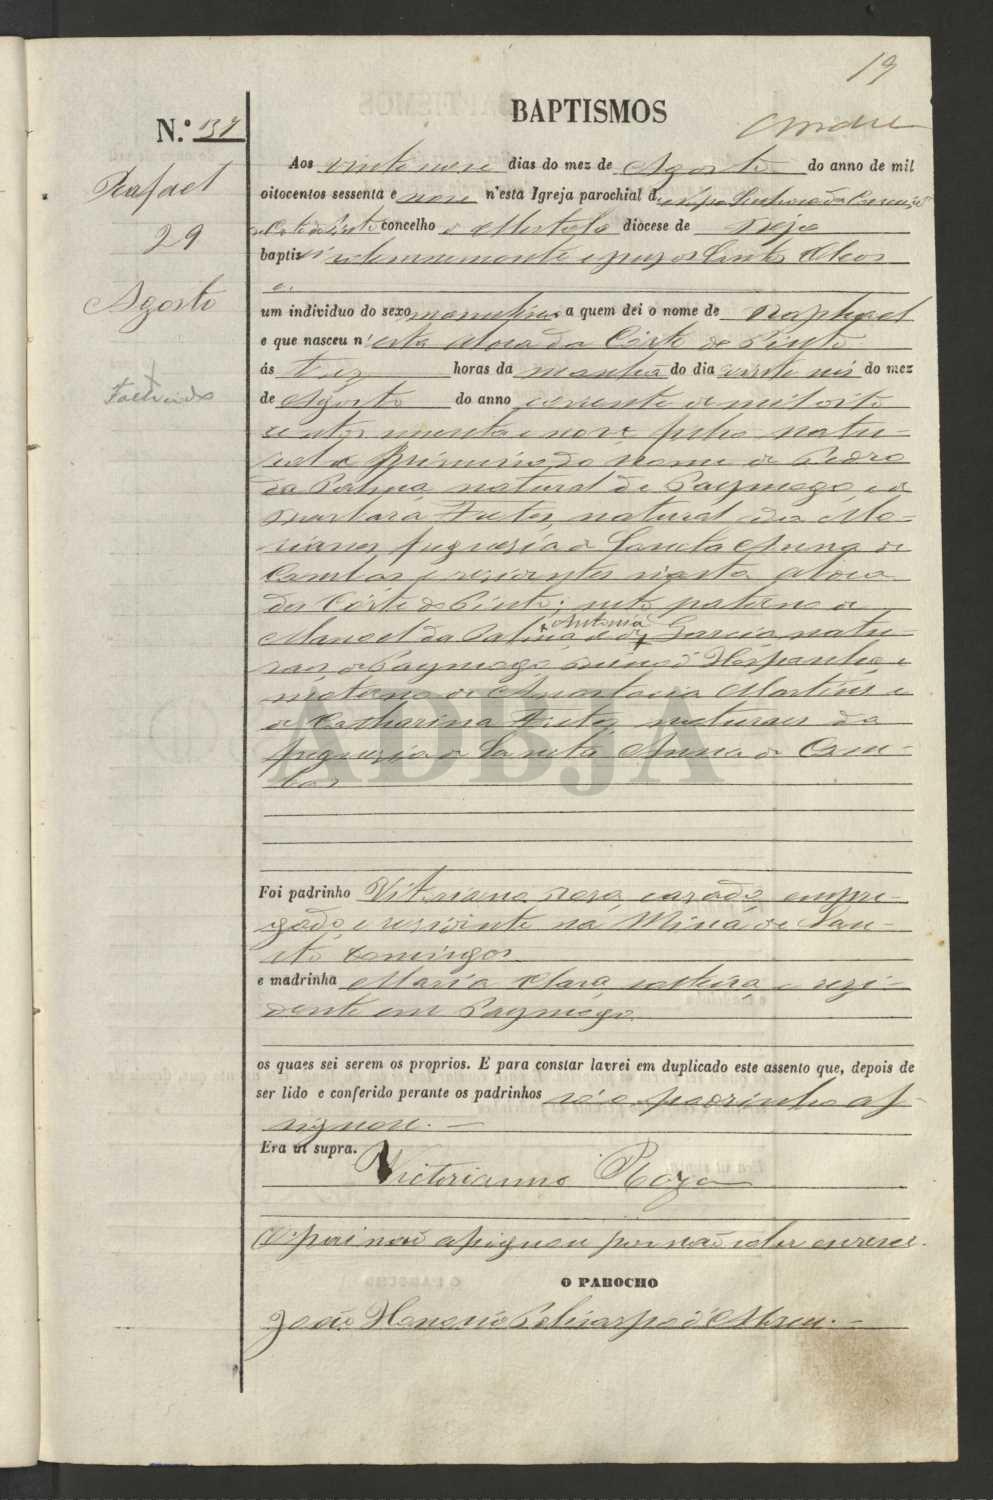 19
BAPTISMOS
N.º 137
Rafael
29
Agosto
Fallecido
Aos vinte nove dias do mez de Agosto do anno de mil
oitocentos sessenta e nove n'esta Igreja parochial de
Corte do Pinto concelho de Mertola diocese de Beja
baptisei solemnemente e puz os Santos Oleos
a
um individuo do sexo masculino a quem dei o nome de Raphael
e que nasceu n'esta Aldea da Corte do Pinto
ás trez horas da manhã do dia vinte seis do mez
de Agosto do anno corrente de mil oito
centos sessenta e nove filho natu-
ral e primeiro do nome de Pedro
da Palma natural de Paymogo e de
Barbara Fretes, natural dos Mo-
rianes freguesia de Sancta Anna de
Cambas e residentes nesta Aldea
da Côrte do Pinto; neto paterno de
Manoel da Palma e de Antonia Garcia natu-
raes de Paymogo Reino d'Hespanha e
materno de Anastacia Martins e
de Catharina Fretes naturaes da
freguezia de Sancta Anna de Cam-
bas
ADBJA
Foi padrinho Vitoriano Roza, cazado, empre-
gado e residente na Mina de San-
to Domingos
e madrinha Maria Clara, solteira e rezi-
dente em Paymogo
os quaes sei serem os proprios. E para constar lavrei em duplicado este assento que, depois de
ser lido e conferido perante os padrinhos só o padrinho as-
signou. —
Era ut supra.
Victorianno Roza
O pai não assignou por não saber escrever.
O PAROCHO
João Honorio Policarpo d'Abreu. —